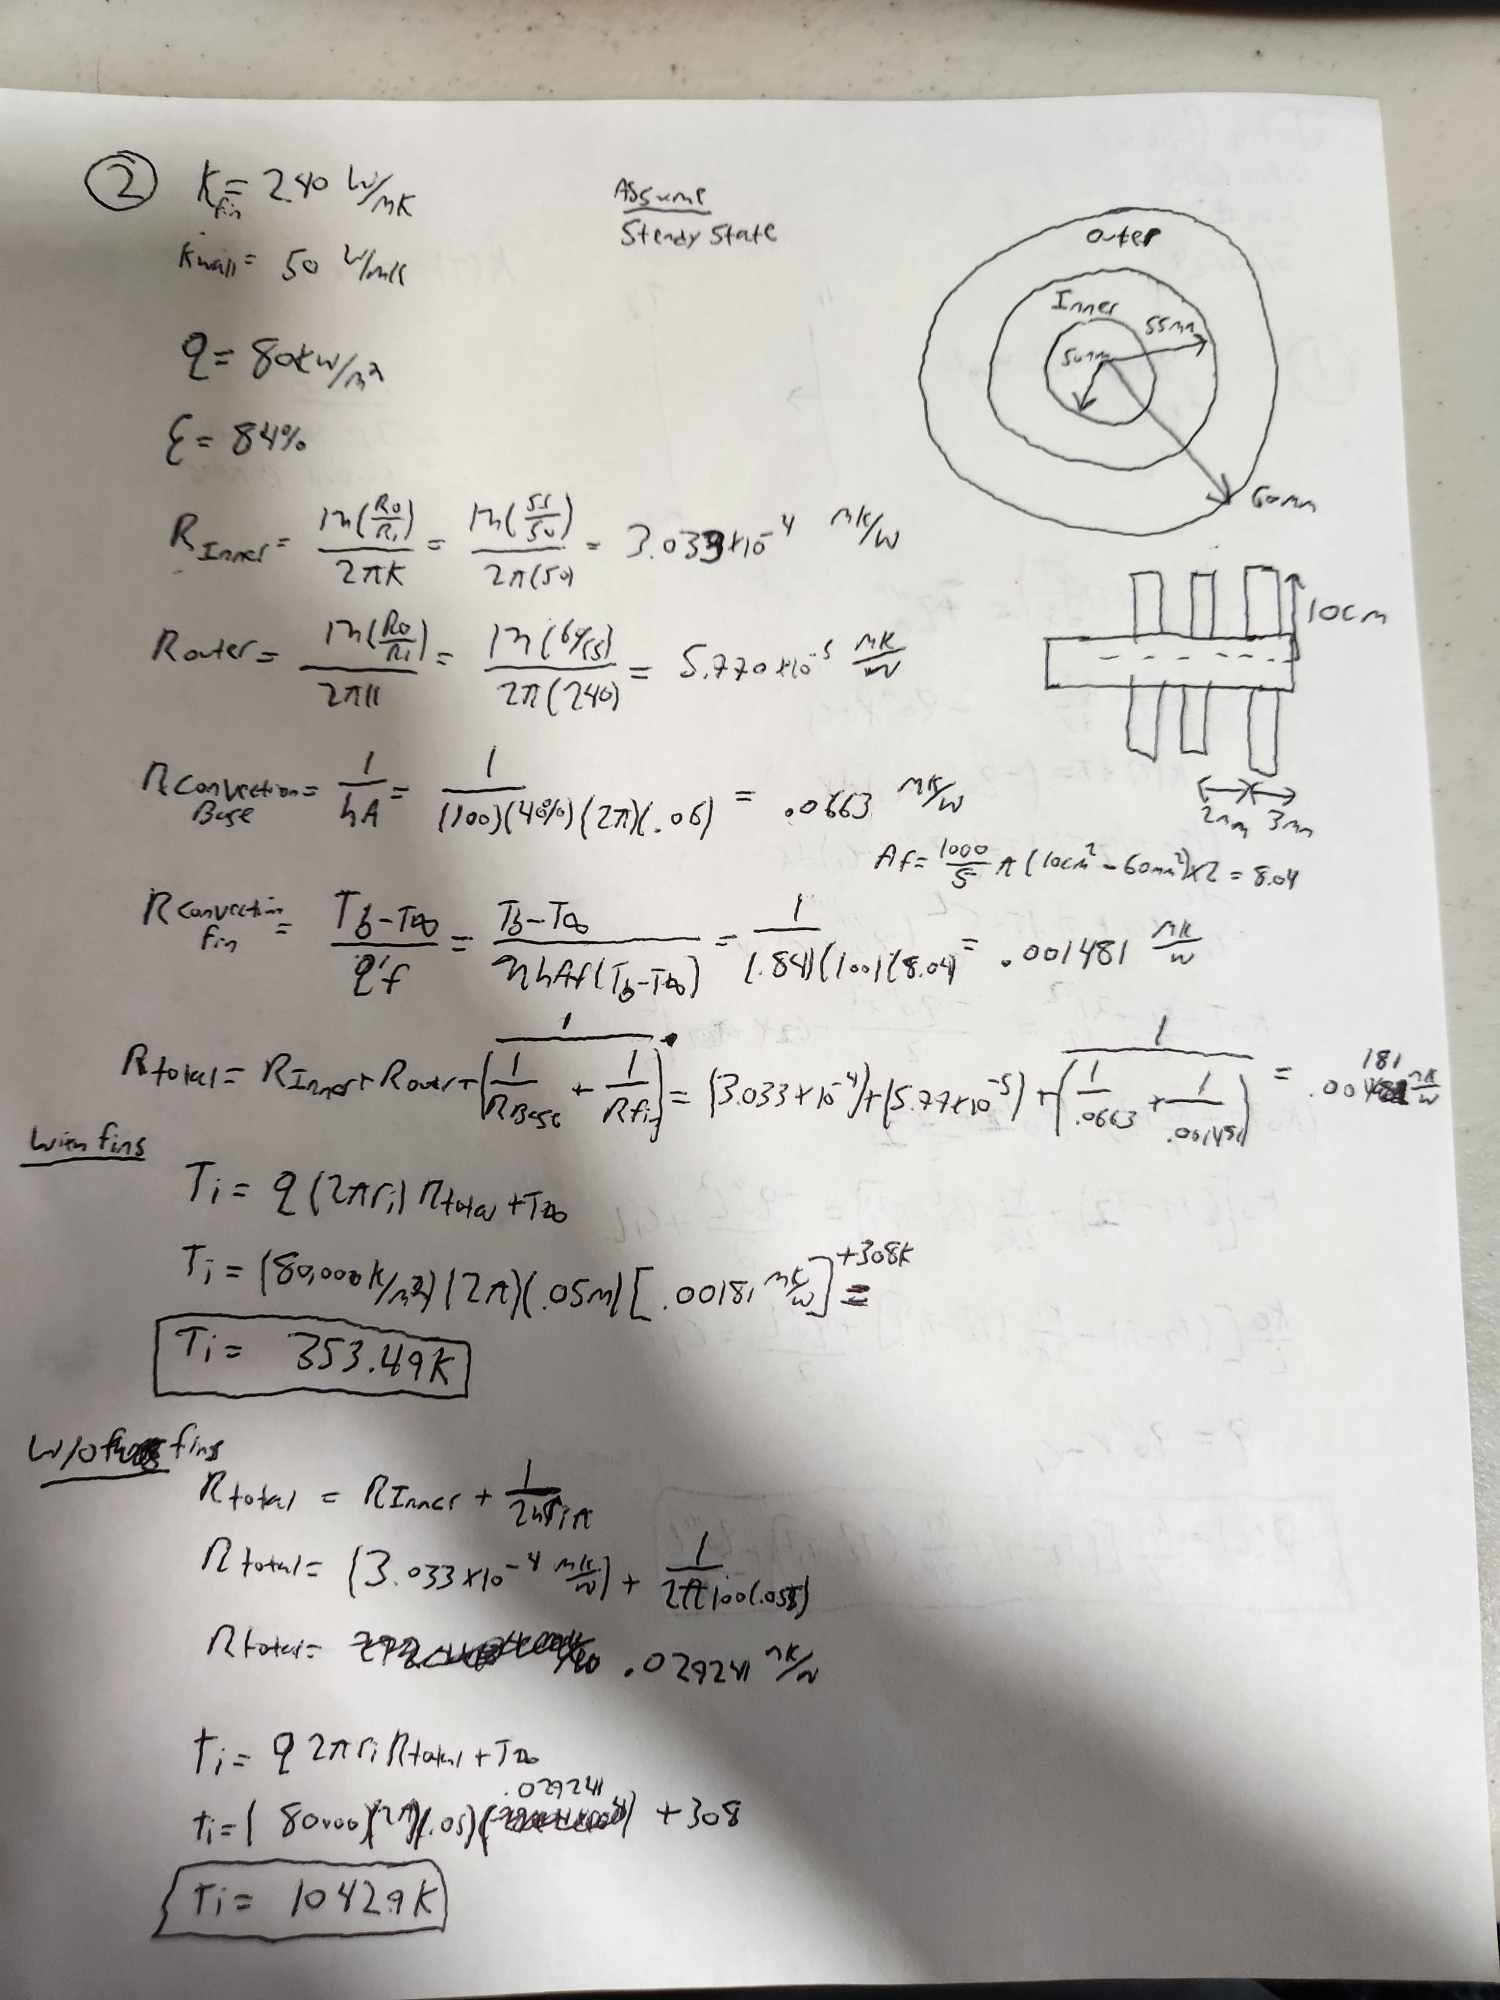 ② K fin = 240 W/mK
Assume
Steady State
Kwall = 50 W/mK
q = 80kW/m²
ε = 84%
Outer
Inner
55mm
50mm
60mm
R Inner = ln(Ro/Ri)/2πK = ln(55/50)/2π(50) = 3.033×10⁻⁴ mK/W
Router = ln(Ro/Ri)/2πK = ln(60/55)/2π(240) = 5.770×10⁻⁵ mK/W
10cm
2mm 3mm
R Convection Base = 1/hA = 1/(100)(40%)(2π)(.06) = .0663 mK/W
Af = 1000/5 π(10cm² - 60mm²)×2 = 8.04
R Convection fin = Tb-T∞/q'f = Tb-T∞/ηhAf(Tb-T∞) = 1/(.84)(100)(8.04) = .001481 mK/W
Rtotal = RInner + Router + 1/(1/RBase + 1/Rfin) = (3.033×10⁻⁴)+(5.77×10⁻⁵)+ 1/(1/.0663 + 1/.001481) = .00181 mK/W
With fins
Ti = q(2πri) Rtotal + T∞
Ti = (80,000k/m²)(2π)(.05m)[.00181 mK/W] +308K =
Ti = 353.49K
W/o fins
Rtotal = RInner + 1/2hriπ
Rtotal = (3.033×10⁻⁴ mK/W) + 1/2π100(.055)
Rtotal = .029241 mK/W
Ti = q 2πri Rtotal + T∞
Ti = (80000)(2π)(.05)(.029241) + 308
Ti = 1042.9K